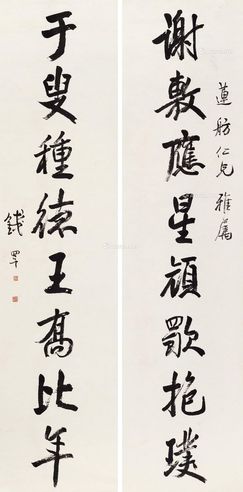 蓮舫仁兄雅屬
謝敷應星顏歜抱璞
于叟種德王喬比年
錢罕